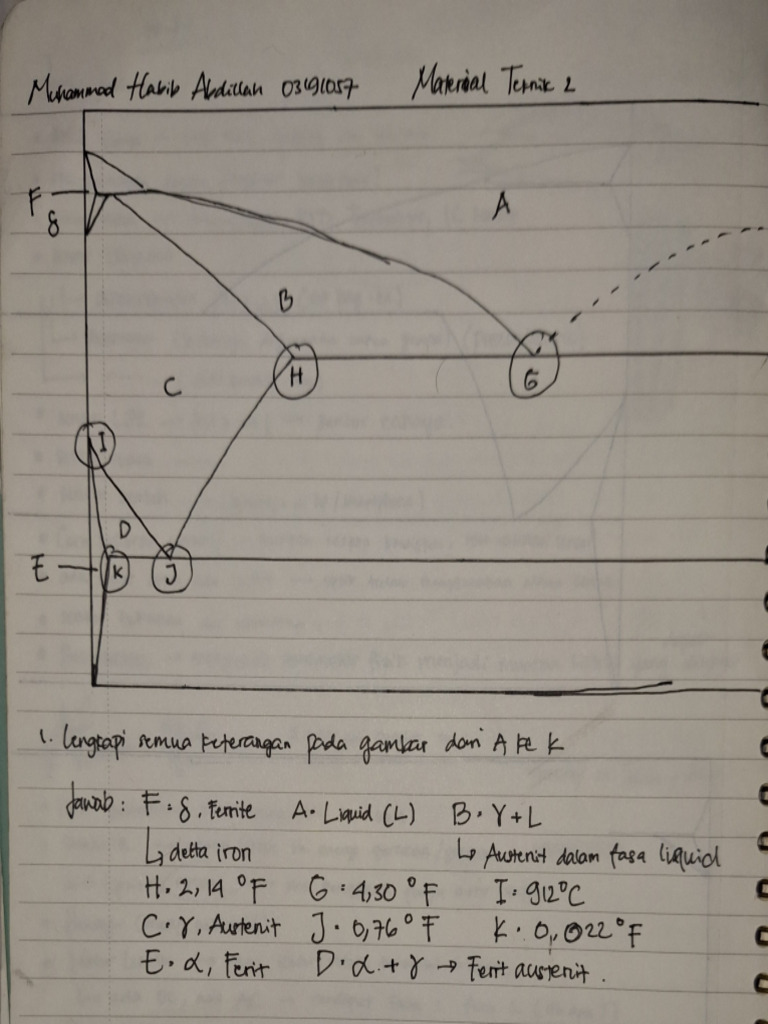 Muhammad Habib Abdillah 03191057 Material Teknik 2
F
δ
A
B
H
G
C
I
D
E
K
J
1. Lengkapi semua keterangan pada gambar dari A ke K
Jawab : F = δ, Ferrite A = Liquid (L) B = γ + L
↳ delta iron ↳ Austenit dalam fasa liquid
H = 2,14 °F G = 4,30 °F I = 912°C
C = γ, Austenit J = 0,76 °F K = 0,022 °F
E = α, Ferit D = α + γ → Ferit austenit.